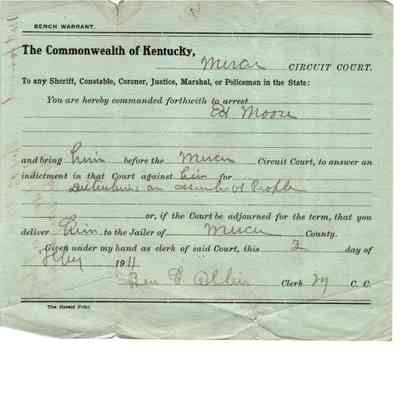 BENCH WARRANT.
The Commonwealth of Kentucky,
Mercer CIRCUIT COURT.
To any Sheriff, Constable, Coroner, Justice, Marshal, or Policeman in the State:
You are hereby commanded forthwith to arrest
Ed Moore
and bring him before the Mercer Circuit Court, to answer an
indictment in that Court against him for
Disturbing an assembly of People
or, if the Court be adjourned for the term, that you
deliver him to the Jailer of Mercer County.
Given under my hand as clerk of said Court, this 2 day of
1911
Ben C. Allin Clerk M C. C.
The Herald Print